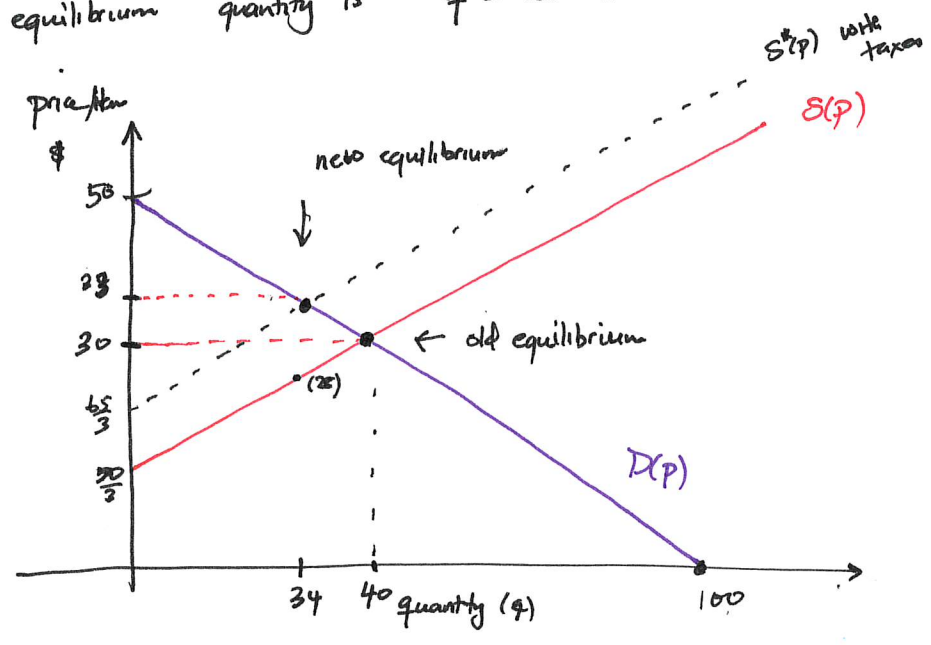 equilibrium quantity is
S*(p) with taxes
price/item
$
S(p)
new equilibrium
50
30
← old equilibrium
(28)
65/3
50/3
D(p)
34 40 quantity (q) 100